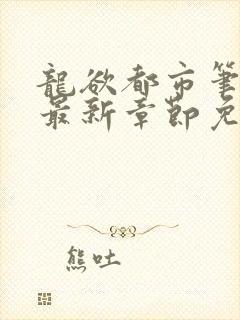 龍欲都市筆
最新章節免
熊吐